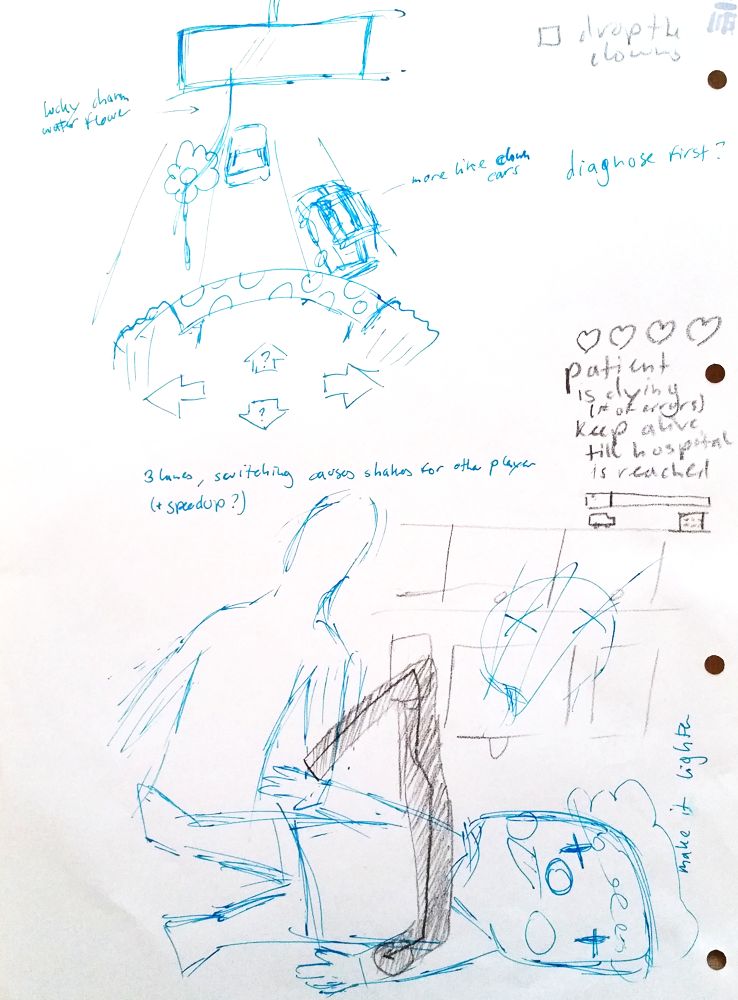 drop the
clowns
lucky charm
water flower
more like clown
cars
diagnose first?
?
?
patient
is dying
(# of errors)
keep alive
till hospital
is reached
3 lanes, switching causes shakes for other player
(+ speedup?)
make it lighter